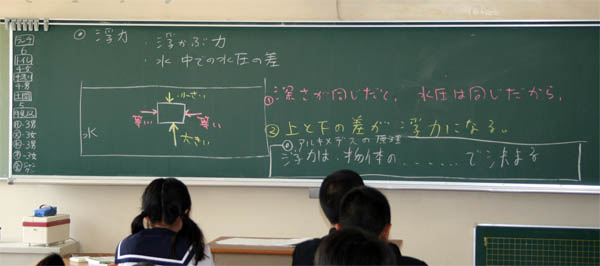 浮力
・浮かぶ力
・水中での水圧の差
小さい
等しい
等しい
大きい
水
①深さが同じだと、水圧は同じだから、
②上と下の差が浮力になる。
アルキメデスの原理
浮力は、物体の......で決まる